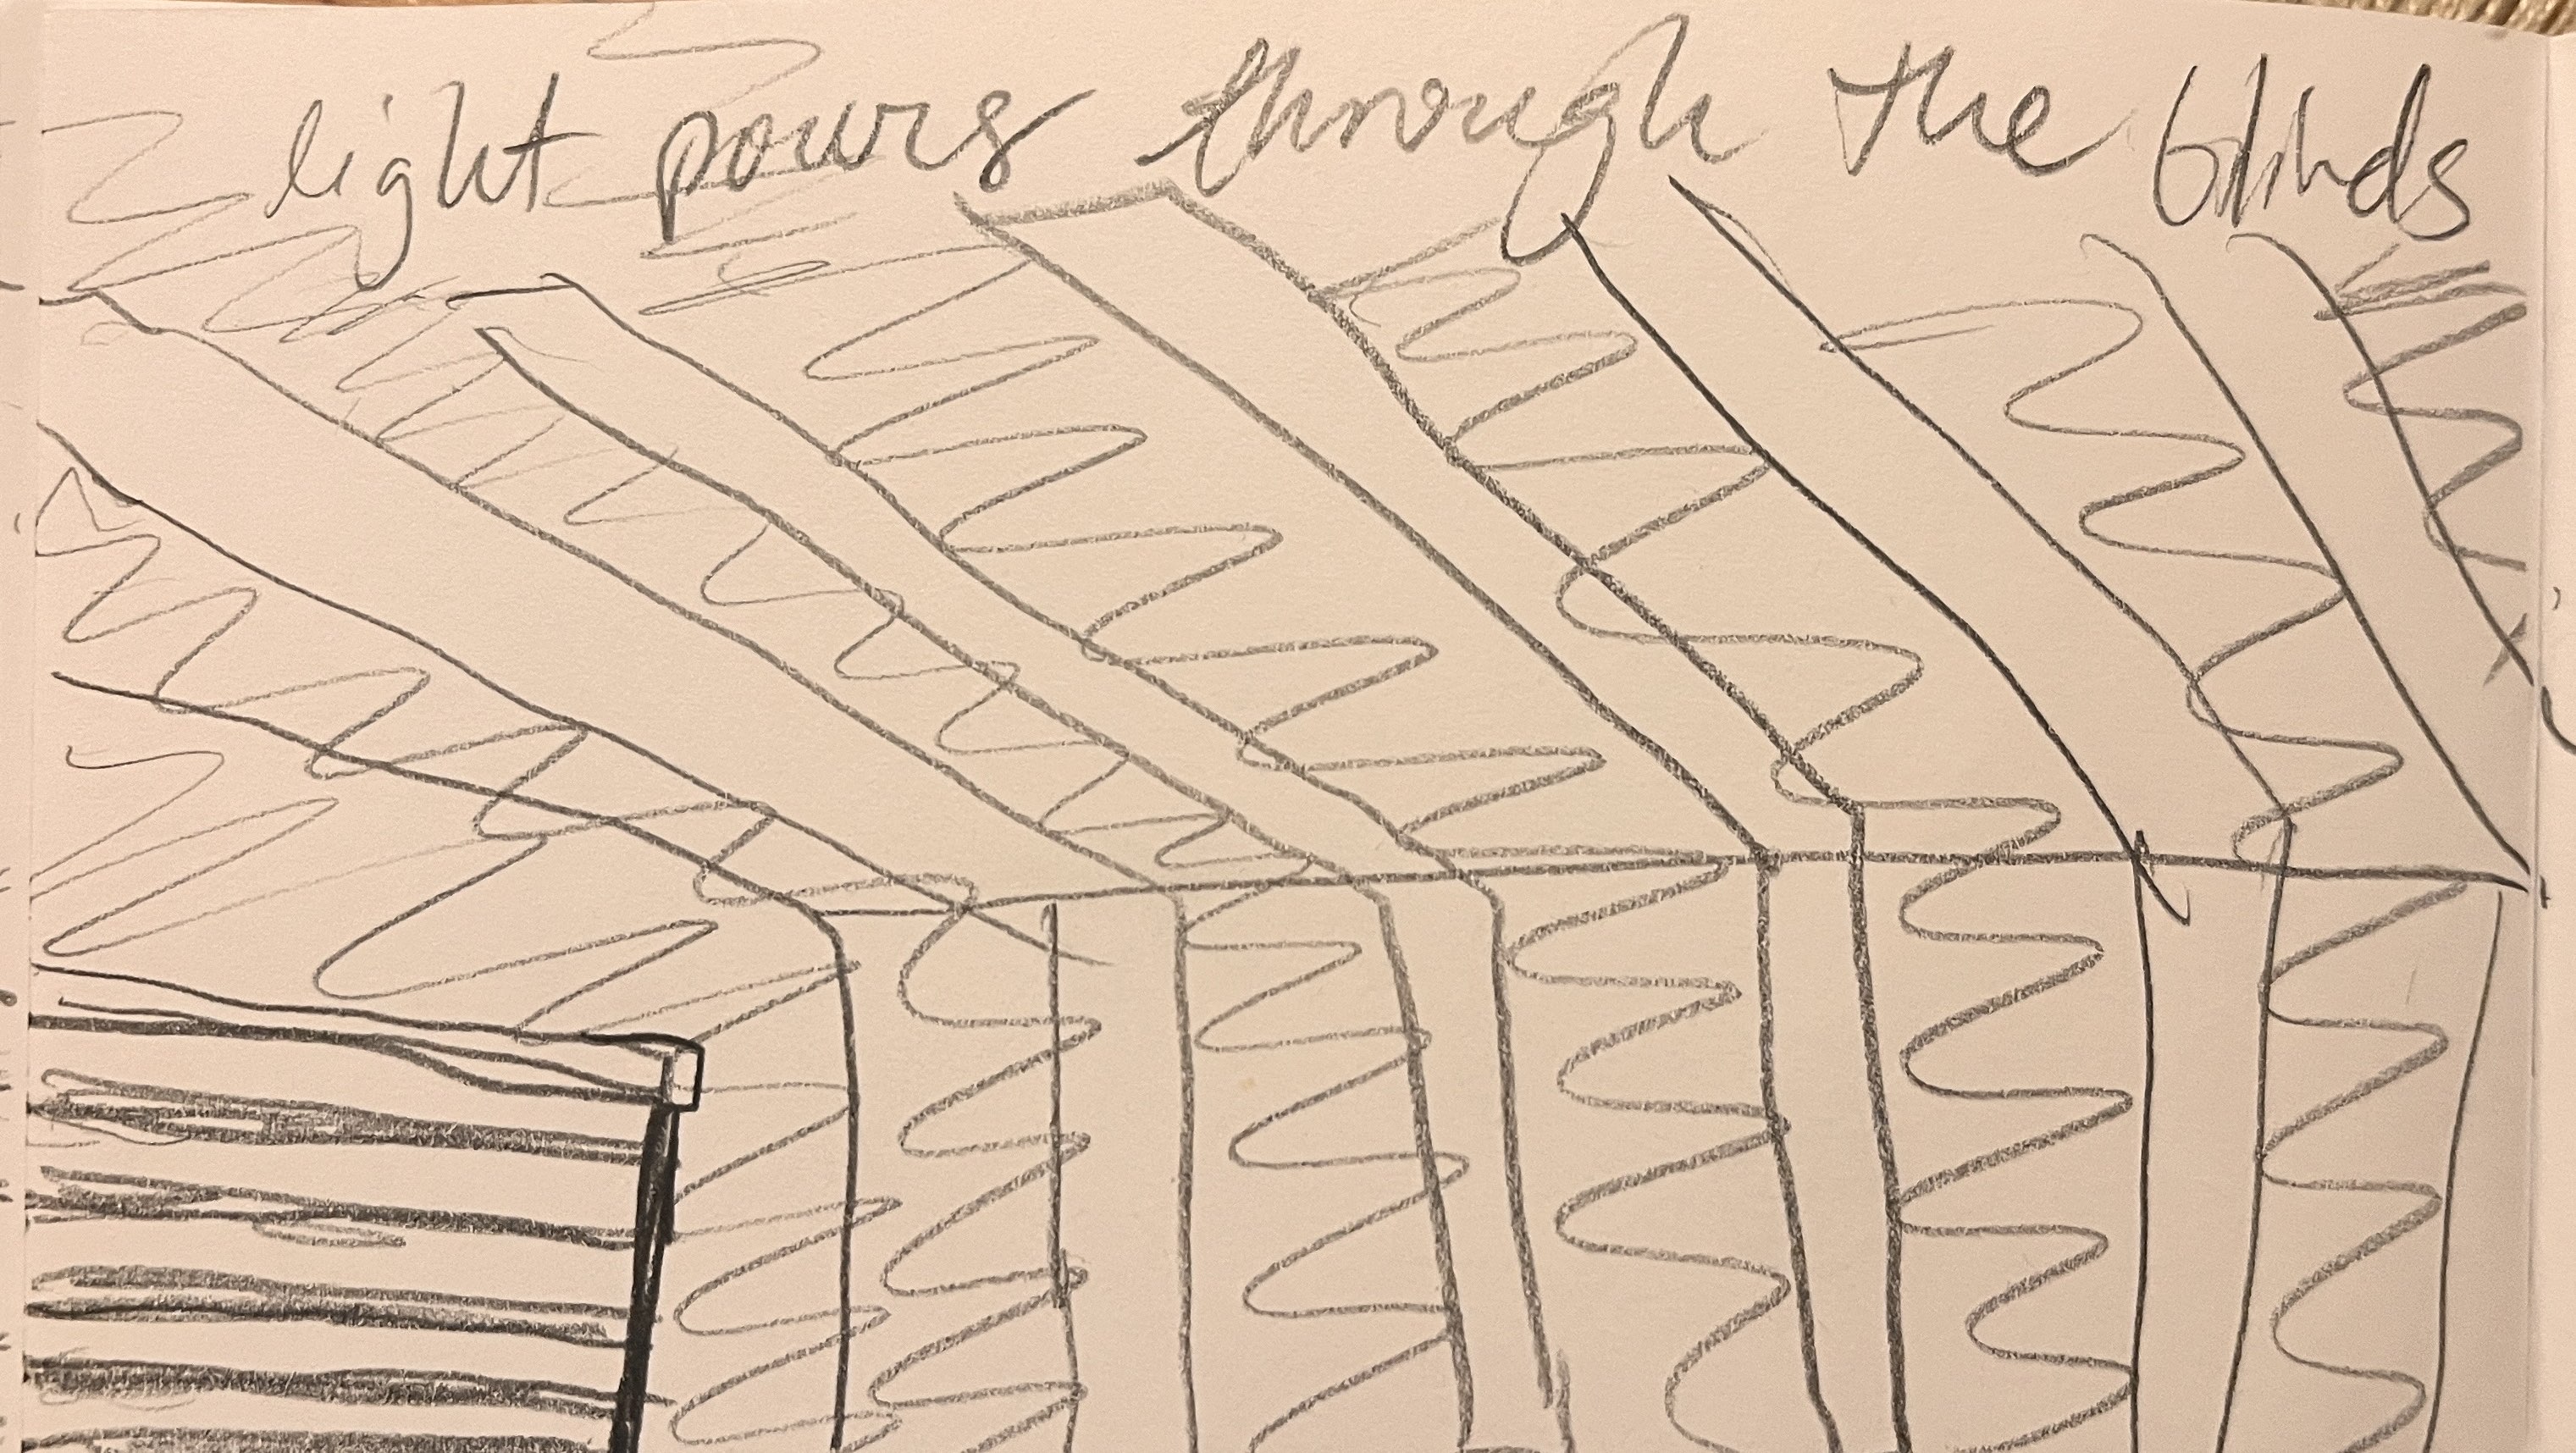 light pours through the blinds